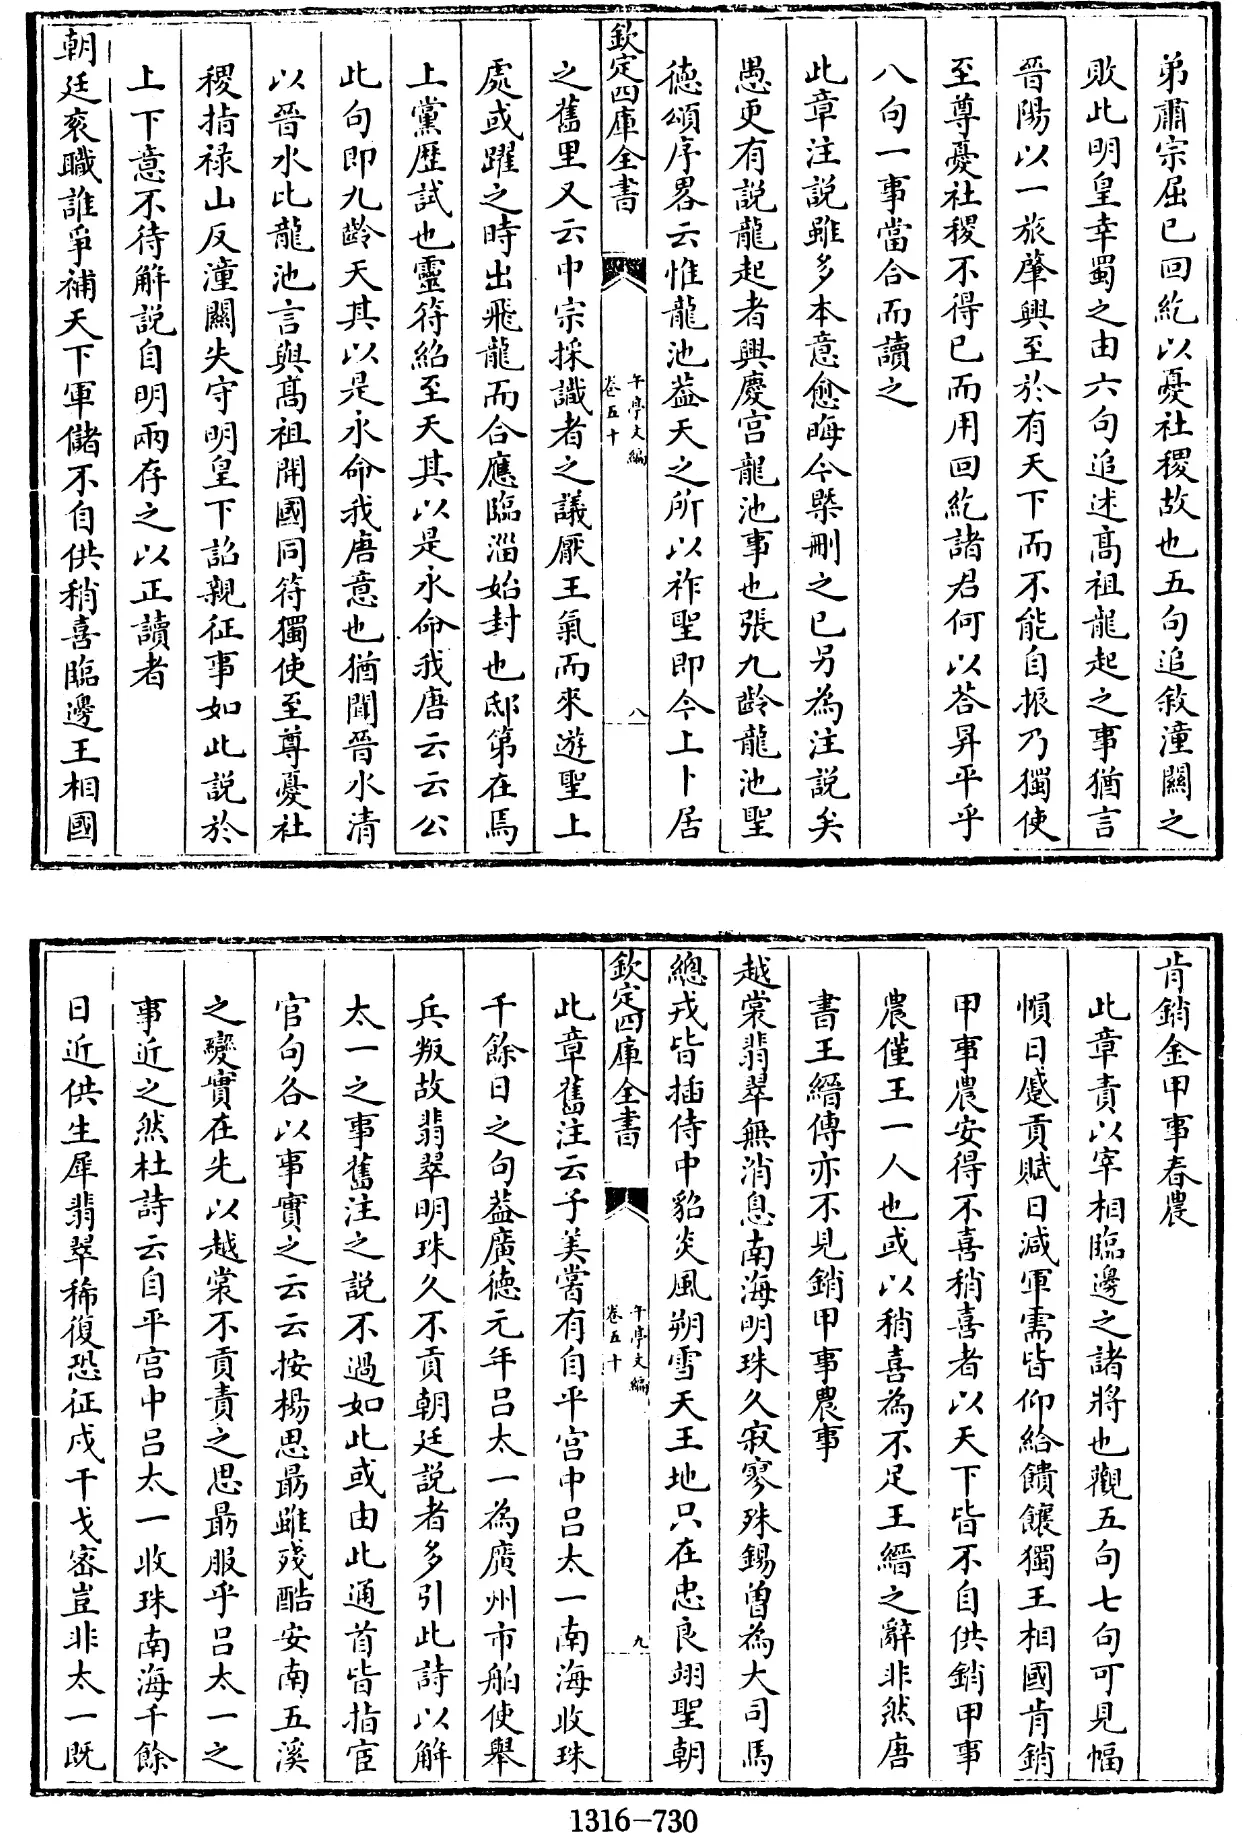 弟肅宗屈已回紇以憂社稷故也五句追敘潼關之
敗此明皇幸蜀之由六句追述髙祖龍起之事猶言
晉陽以一旅肇興至於有天下而不能自振乃獨使
至尊憂社稷不得已而用回紇諸君何以荅昇平乎
八句一事當合而讀之
此章注說雖多本意愈晦今槩刪之已另為注說矣
愚更有說龍起者興慶宫龍池事也張九齡龍池聖
德頌序畧云惟龍池葢天之所以祚聖即今上卜居
欽定四庫全書
午亭文編
卷五十
八
之舊里又云中宗採識者之議厭王氣而來遊聖上
處或躍之時出飛龍而合應臨淄始封也邸第在焉
上黨歴試也靈符紹至天其以是永命我唐云云公
此句即九齡天其以是永命我唐意也猶聞晉水清
以晉水比龍池言與髙祖開國同符獨使至尊憂社
稷指禄山反潼關失守明皇下詔親征事如此說於
上下意不待解說自明兩存之以正讀者
朝廷衮職誰爭補天下軍儲不自供稍喜臨邊王相國
肯銷金甲事春農
此章責以宰相臨邊之諸將也觀五句七句可見幅
幀日蹙貢賦日減軍需皆仰給饋饟獨王相國肯銷
甲事農安得不喜稍喜者以天下皆不自供銷甲事
農僅王一人也或以稍喜為不足王縉之辭非然唐
書王縉傳亦不見銷甲事農事
越裳翡翠無消息南海明珠久寂寥殊錫曽為大司馬
總戎皆插侍中貂炎風朔雪天王地只在忠良翊聖朝
欽定四庫全書
午亭文編
卷五十
九
此章舊注云子美嘗有自平宫中呂太一南海收珠
千餘日之句葢廣德元年呂太一為廣州市舶使舉
兵叛故翡翠明珠久不貢朝廷說者多引此詩以解
太一之事舊注之說不過如此或由此通首皆指宦
官句各以事實之云云按楊思勗雖殘酷安南五溪
之變實在先以越裳不貢責之思勗服乎呂太一之
事近之然杜詩云自平宫中呂太一收珠南海千餘
日近供生犀翡翠稀復恐征戍干戈密豈非太一既
1316-730